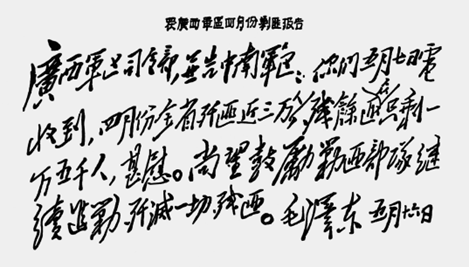 廣西軍區四月份剿匪报告
廣西軍区司令部,並告中南軍区:你们五月七日電
收到,四月份全省歼匪近三万,残餘匪只剩一
万五千人,甚慰。尚望鼓勵剿匪部隊继
續進剿,歼滅一切残匪。毛澤东 五月十六日